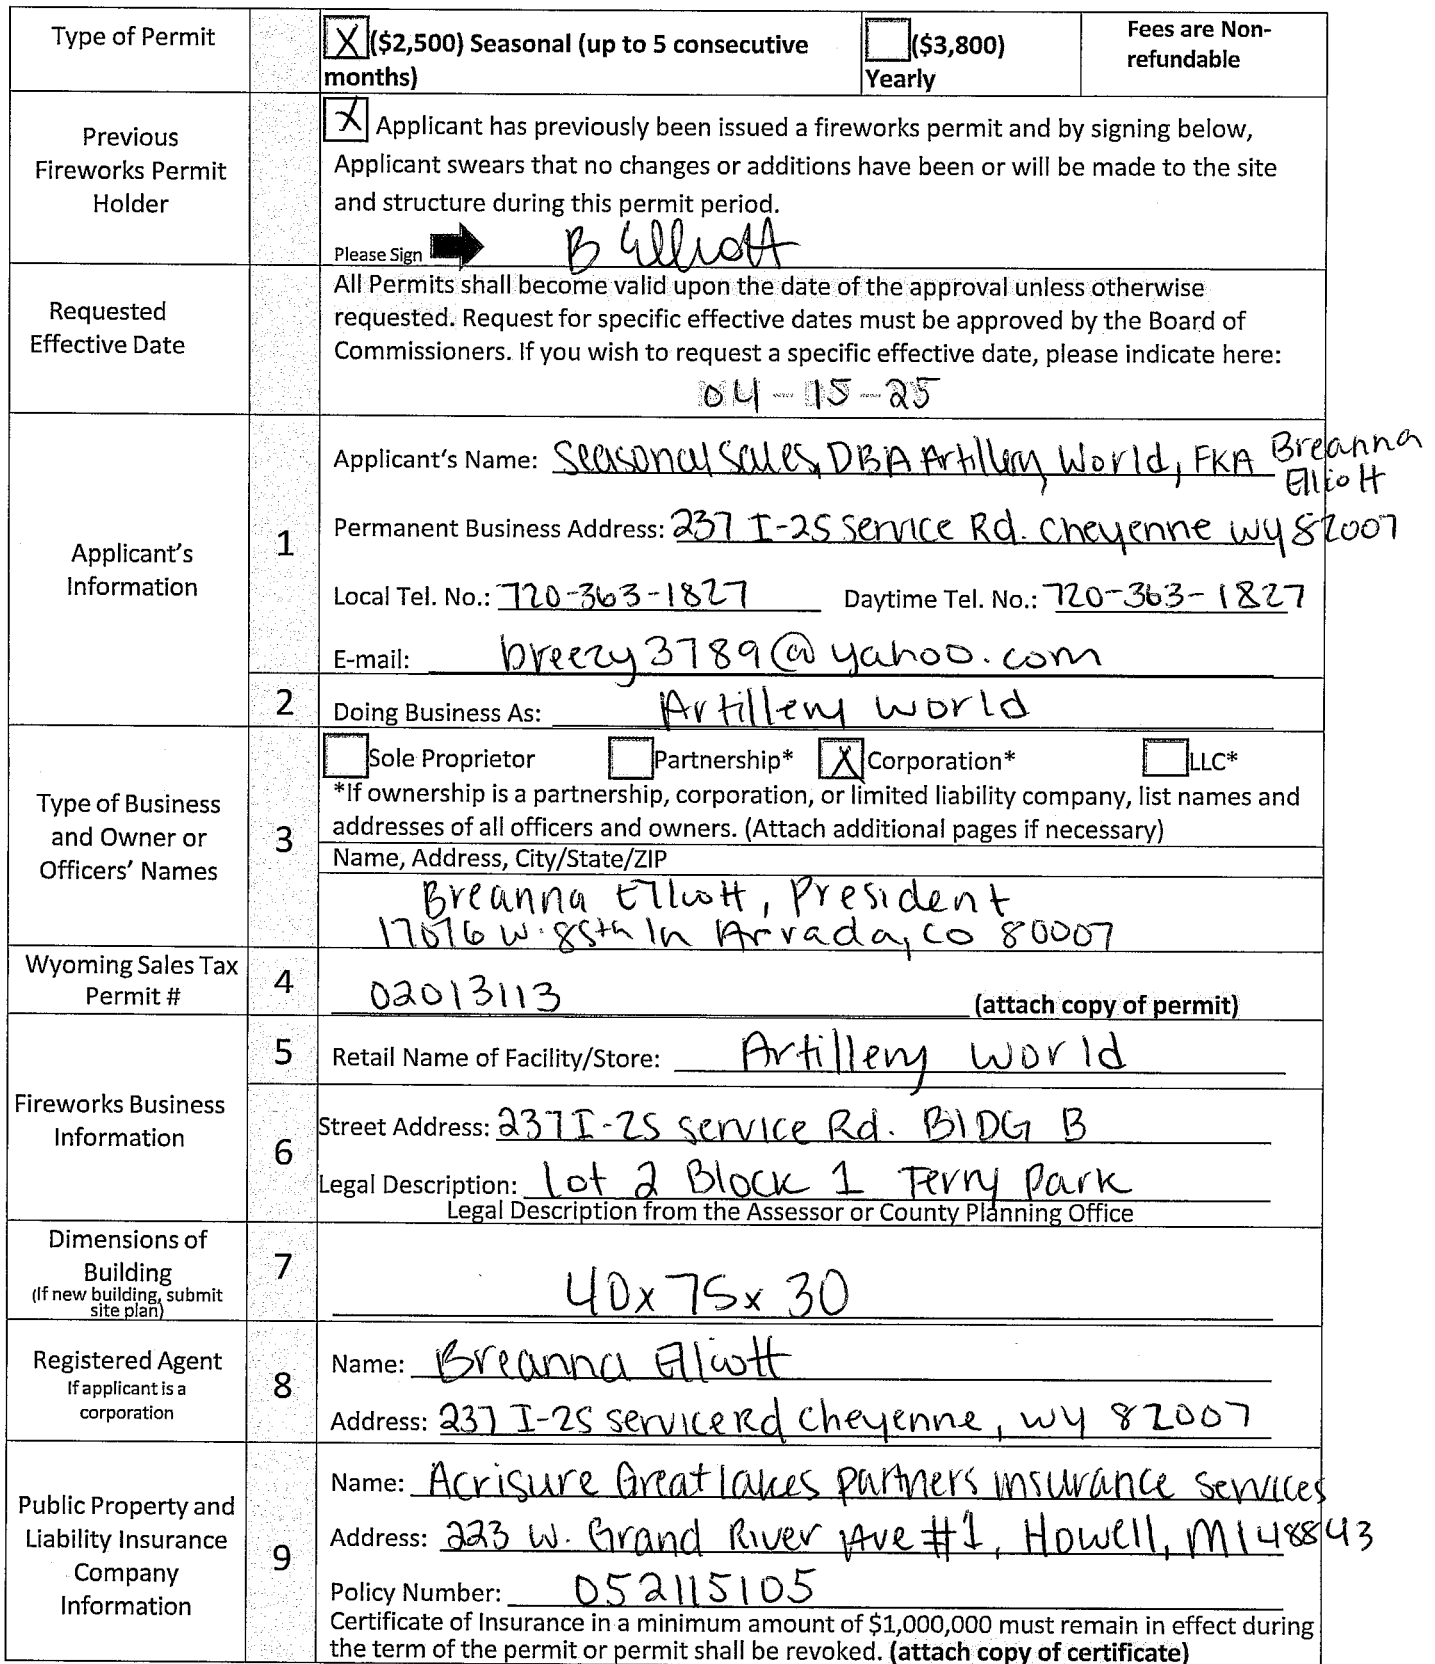 Type of Permit
X ($2,500) Seasonal (up to 5 consecutive months)
($3,800) Yearly
Fees are Non-
refundable
Previous
Fireworks Permit
Holder
X Applicant has previously been issued a fireworks permit and by signing below,
Applicant swears that no changes or additions have been or will be made to the site
and structure during this permit period.
Please Sign B Elliott
Requested
Effective Date
All Permits shall become valid upon the date of the approval unless otherwise
requested. Request for specific effective dates must be approved by the Board of
Commissioners. If you wish to request a specific effective date, please indicate here:
04-15-25
Applicant's
Information
1
Applicant's Name: Seasonal Sales, DBA Artillery World, FKA Breanna
Elliott
Permanent Business Address: 237 I-25 Service Rd. Cheyenne WY 82007
Local Tel. No.: 720-363-1827 Daytime Tel. No.: 720-363-1827
E-mail: breezy3789@yahoo.com
2
Doing Business As: Artillery World
Type of Business
and Owner or
Officers' Names
3
Sole Proprietor Partnership* X Corporation* LLC*
*If ownership is a partnership, corporation, or limited liability company, list names and
addresses of all officers and owners. (Attach additional pages if necessary)
Name, Address, City/State/ZIP
Breanna Elliott, President
17076 W. 85th ln Arvada, CO 80007
Wyoming Sales Tax
Permit #
4
02013113 (attach copy of permit)
Fireworks Business
Information
5
Retail Name of Facility/Store: Artillery World
6
Street Address: 237 I-25 Service Rd. BlDG B
Legal Description: Lot 2 Block 1 Terry Park
Legal Description from the Assessor or County Planning Office
Dimensions of
Building
(If new building, submit
site plan)
7
40x75x30
Registered Agent
If applicant is a
corporation
8
Name: Breanna Elliott
Address: 237 I-25 Service Rd Cheyenne, WY 82007
Public Property and
Liability Insurance
Company
Information
9
Name: Acrisure Great lakes partners insurance services
Address: 223 W. Grand River Ave #1, Howell, MI 48843
Policy Number: 052115105
Certificate of Insurance in a minimum amount of $1,000,000 must remain in effect during
the term of the permit or permit shall be revoked. (attach copy of certificate)